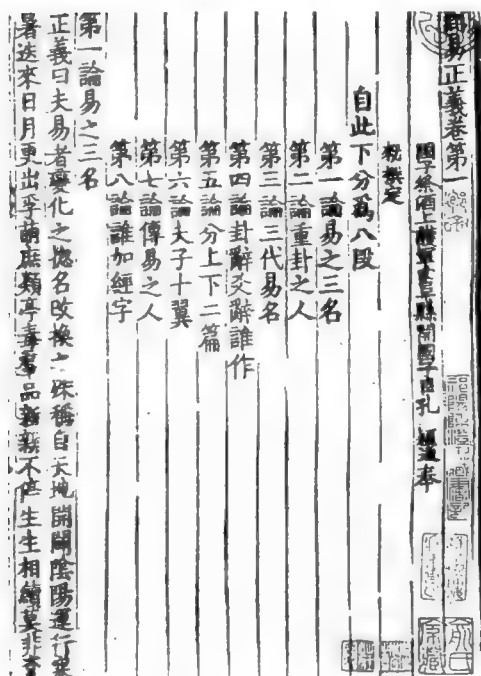 周易正義卷第一
國子祭酒上護軍曲阜縣開國子臣孔穎達奉
敕撰定
自此下分爲八段
第一論易之三名
第二論重卦之人
第三論三代易名
第四論卦辭爻辭誰作
第五論分上下二篇
第六論夫子十翼
第七論傳易之人
第八論誰加經字
第一論易之三名
正義曰夫易者變化之揔名改換之殊稱自天地開闢陰陽運行寒
暑迭來日月更出孚萌庶類亭毒羣品新新不停生生相續莫非